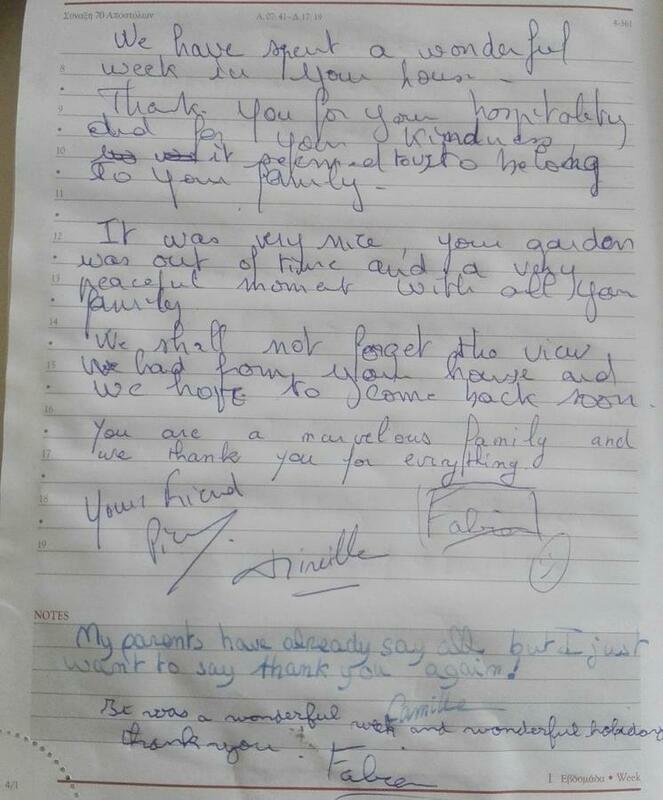 Σύναξη 70 Αποστόλων Α. 07: 41 - Δ. 17: 19 4-361
We have spent a wonderful
week in your house -
Thank you for your hospitality
and for your kindness
it seemed to us to belong
to your family -
It was very nice, your garden
was out of time and a very
peaceful moment with all your
family
We shall not forget the view
we had from your house and
we hope to come back soon.
You are a marvelous family and
we thank you for everything
Your friend
Mireille Fabien
8
9
10
11
12
13
14
15
16
17
18
19
NOTES
My parents have already say all but I just
want to say thank you again!
Camille
It was a wonderful week and wonderful holidays
thank you.
Fabien
4/1 1 Εβδομάδα • Week